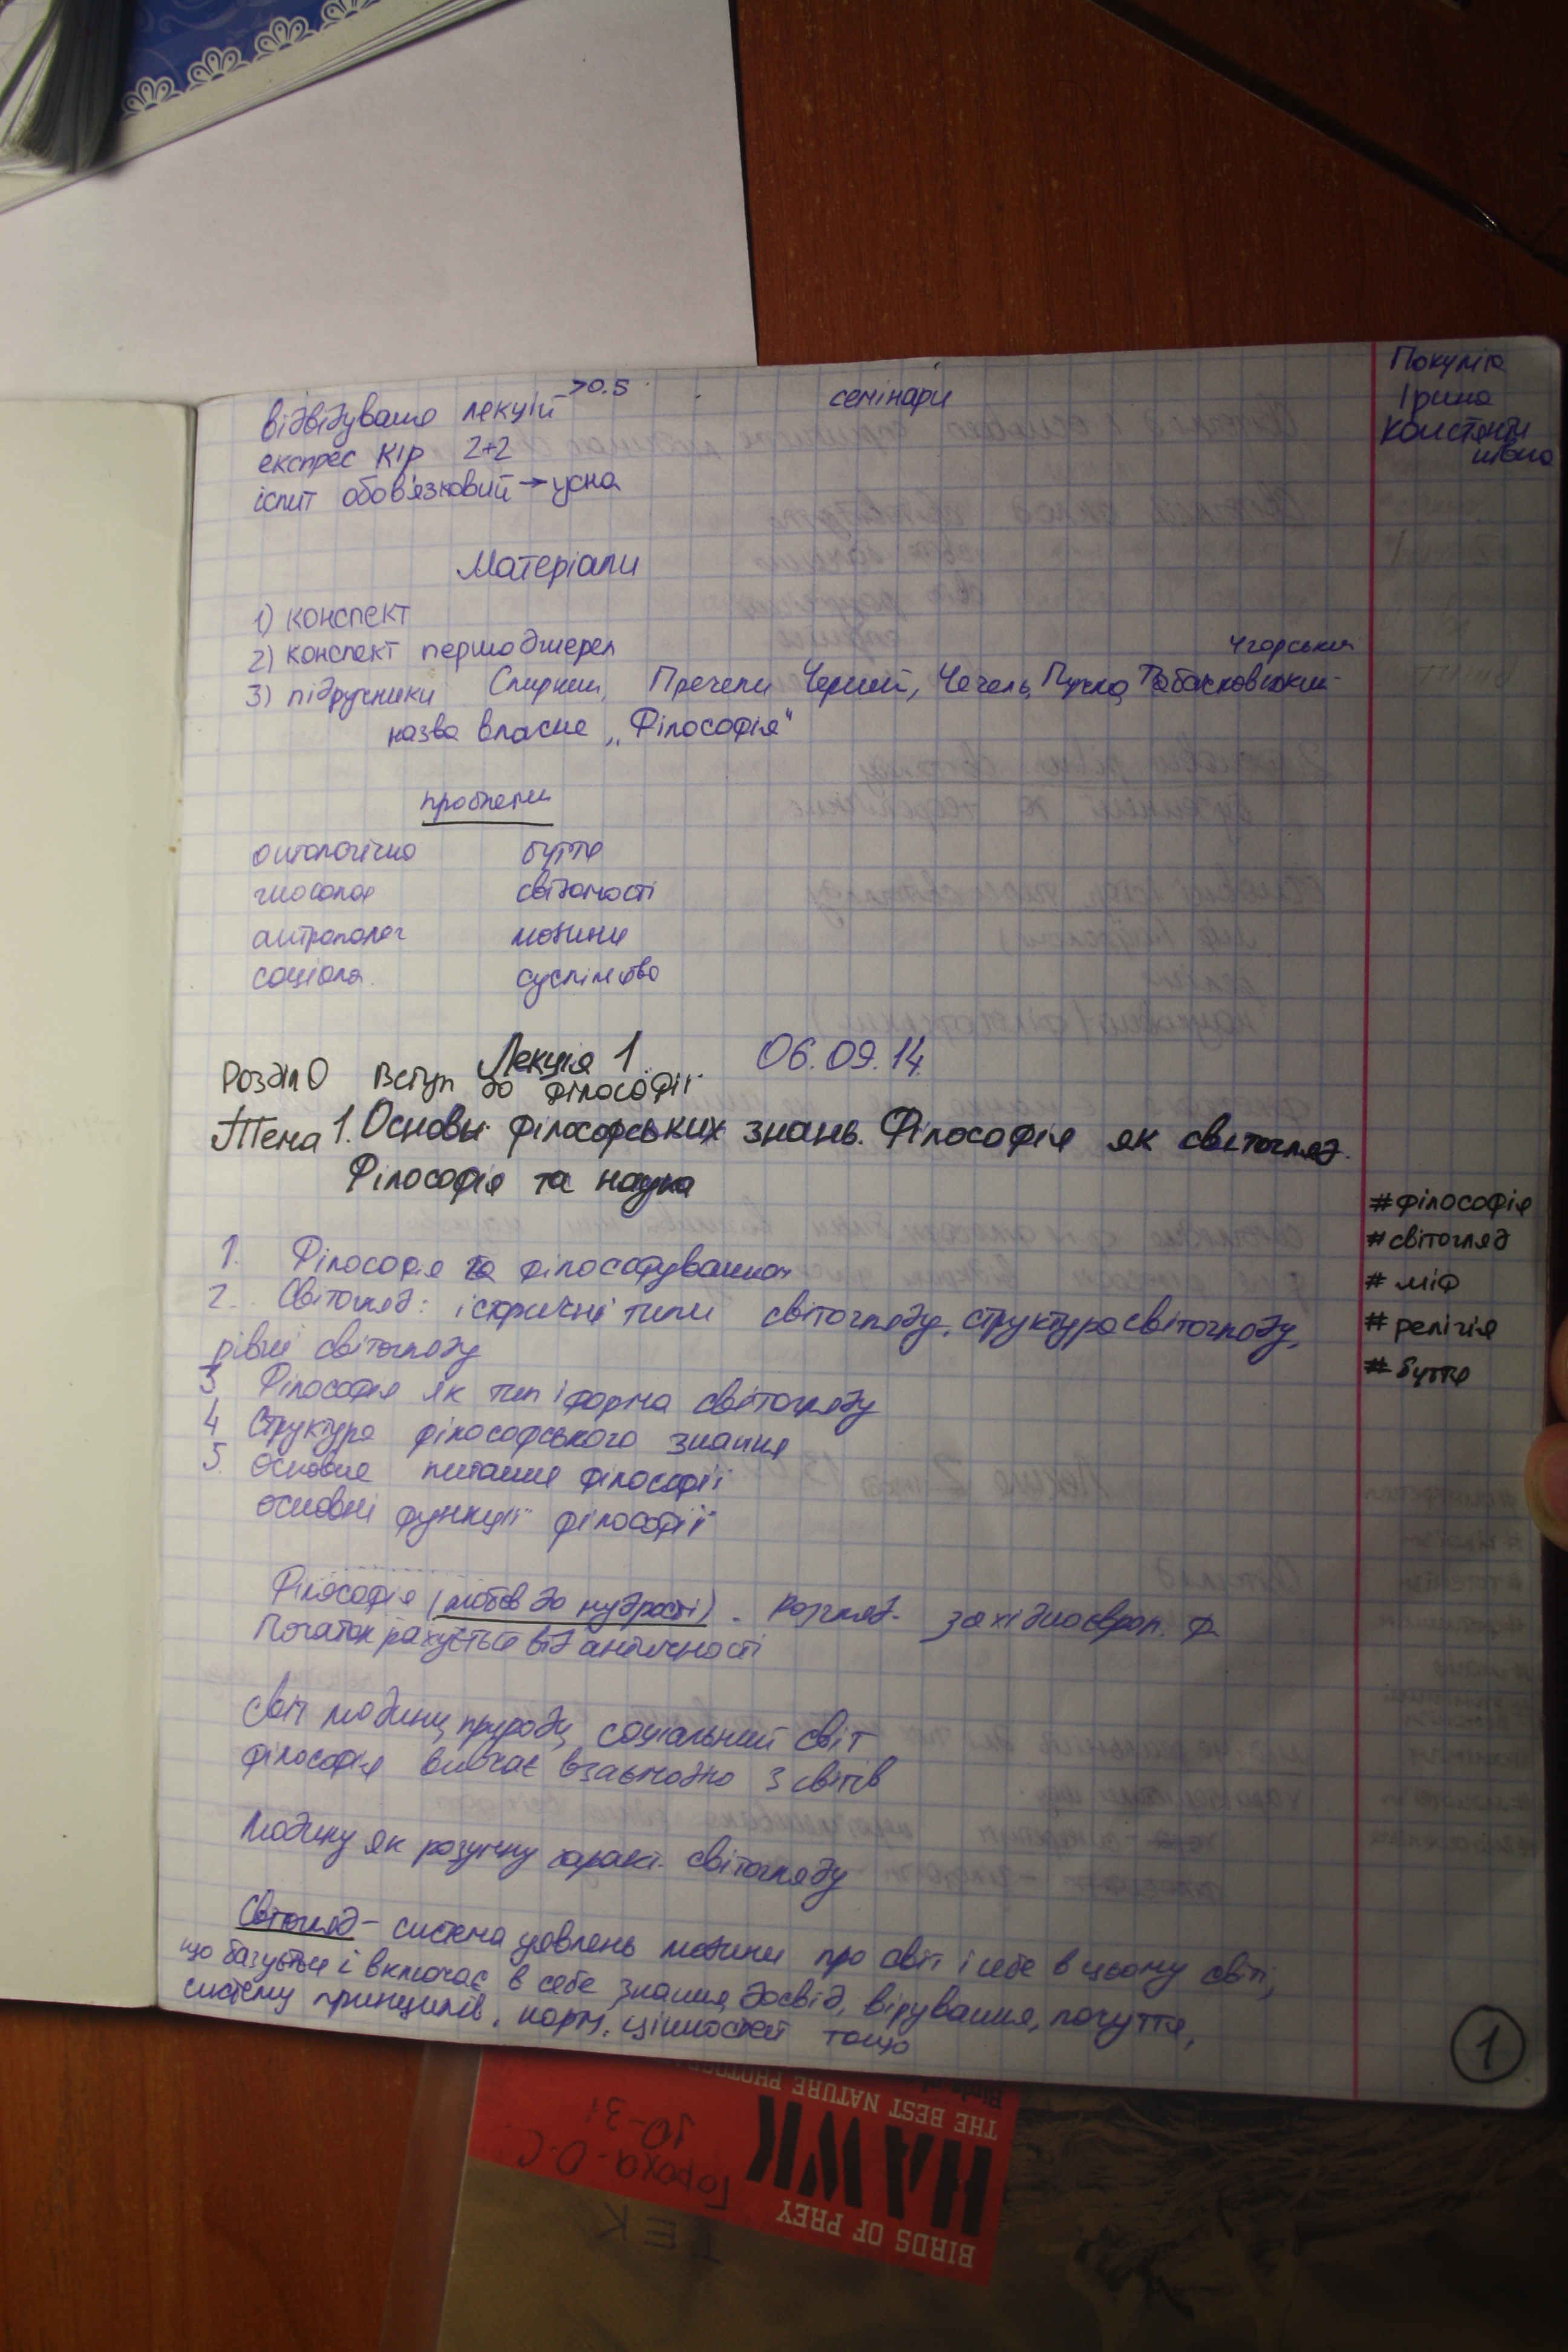 відвідування лекцій >0.5
семінари
експрес к/р 2+2
іспит обов'язковий → усна
Ірина
Матеріали
1) конспект
2) конспект першоджерел
3) підручники Черний, Чечель, Пучко, Табасковський
Чгорський
назва власне „Філософія“
проблеми
онтологічна буття
гносеолог свідомості
антрополог людини
соціолог суспільство
Лекція 1. 06.09.14
Розділ 0 Вступ до філософії
Тема 1. Основи філософських знань. Філософія як світогляд.
Філософія та наука
#філософія
#світогляд
#міф
#релігія
#буття
1. Філософія та філософування
2. Світогляд: історичні типи світогляду, структура світогляду,
рівні світогляду
3 Філософія як тип і форма світогляду
4 Структура філософського знання
5. Основне питання філософії
основні функції філософії
Філософія (любов до мудрості). Розгляд. західноєвроп. ф.
Початок рахується від античності
Світ людини, природи, соціальний світ
філософія вивчає взаємодію 3 світів
Людину як розумну характ. світогляду
Світогляд – система уявлень людини про світ і себе в цьому світі,
що базується і включає в себе знання, досвід, вірування, почуття,
систему принципів, норм, цінностей тощо
1
THE BEST NATURE PHOTOGR
HAWK
BIRDS OF PREY
Гороха О.С.
ІО-31
ТЕК